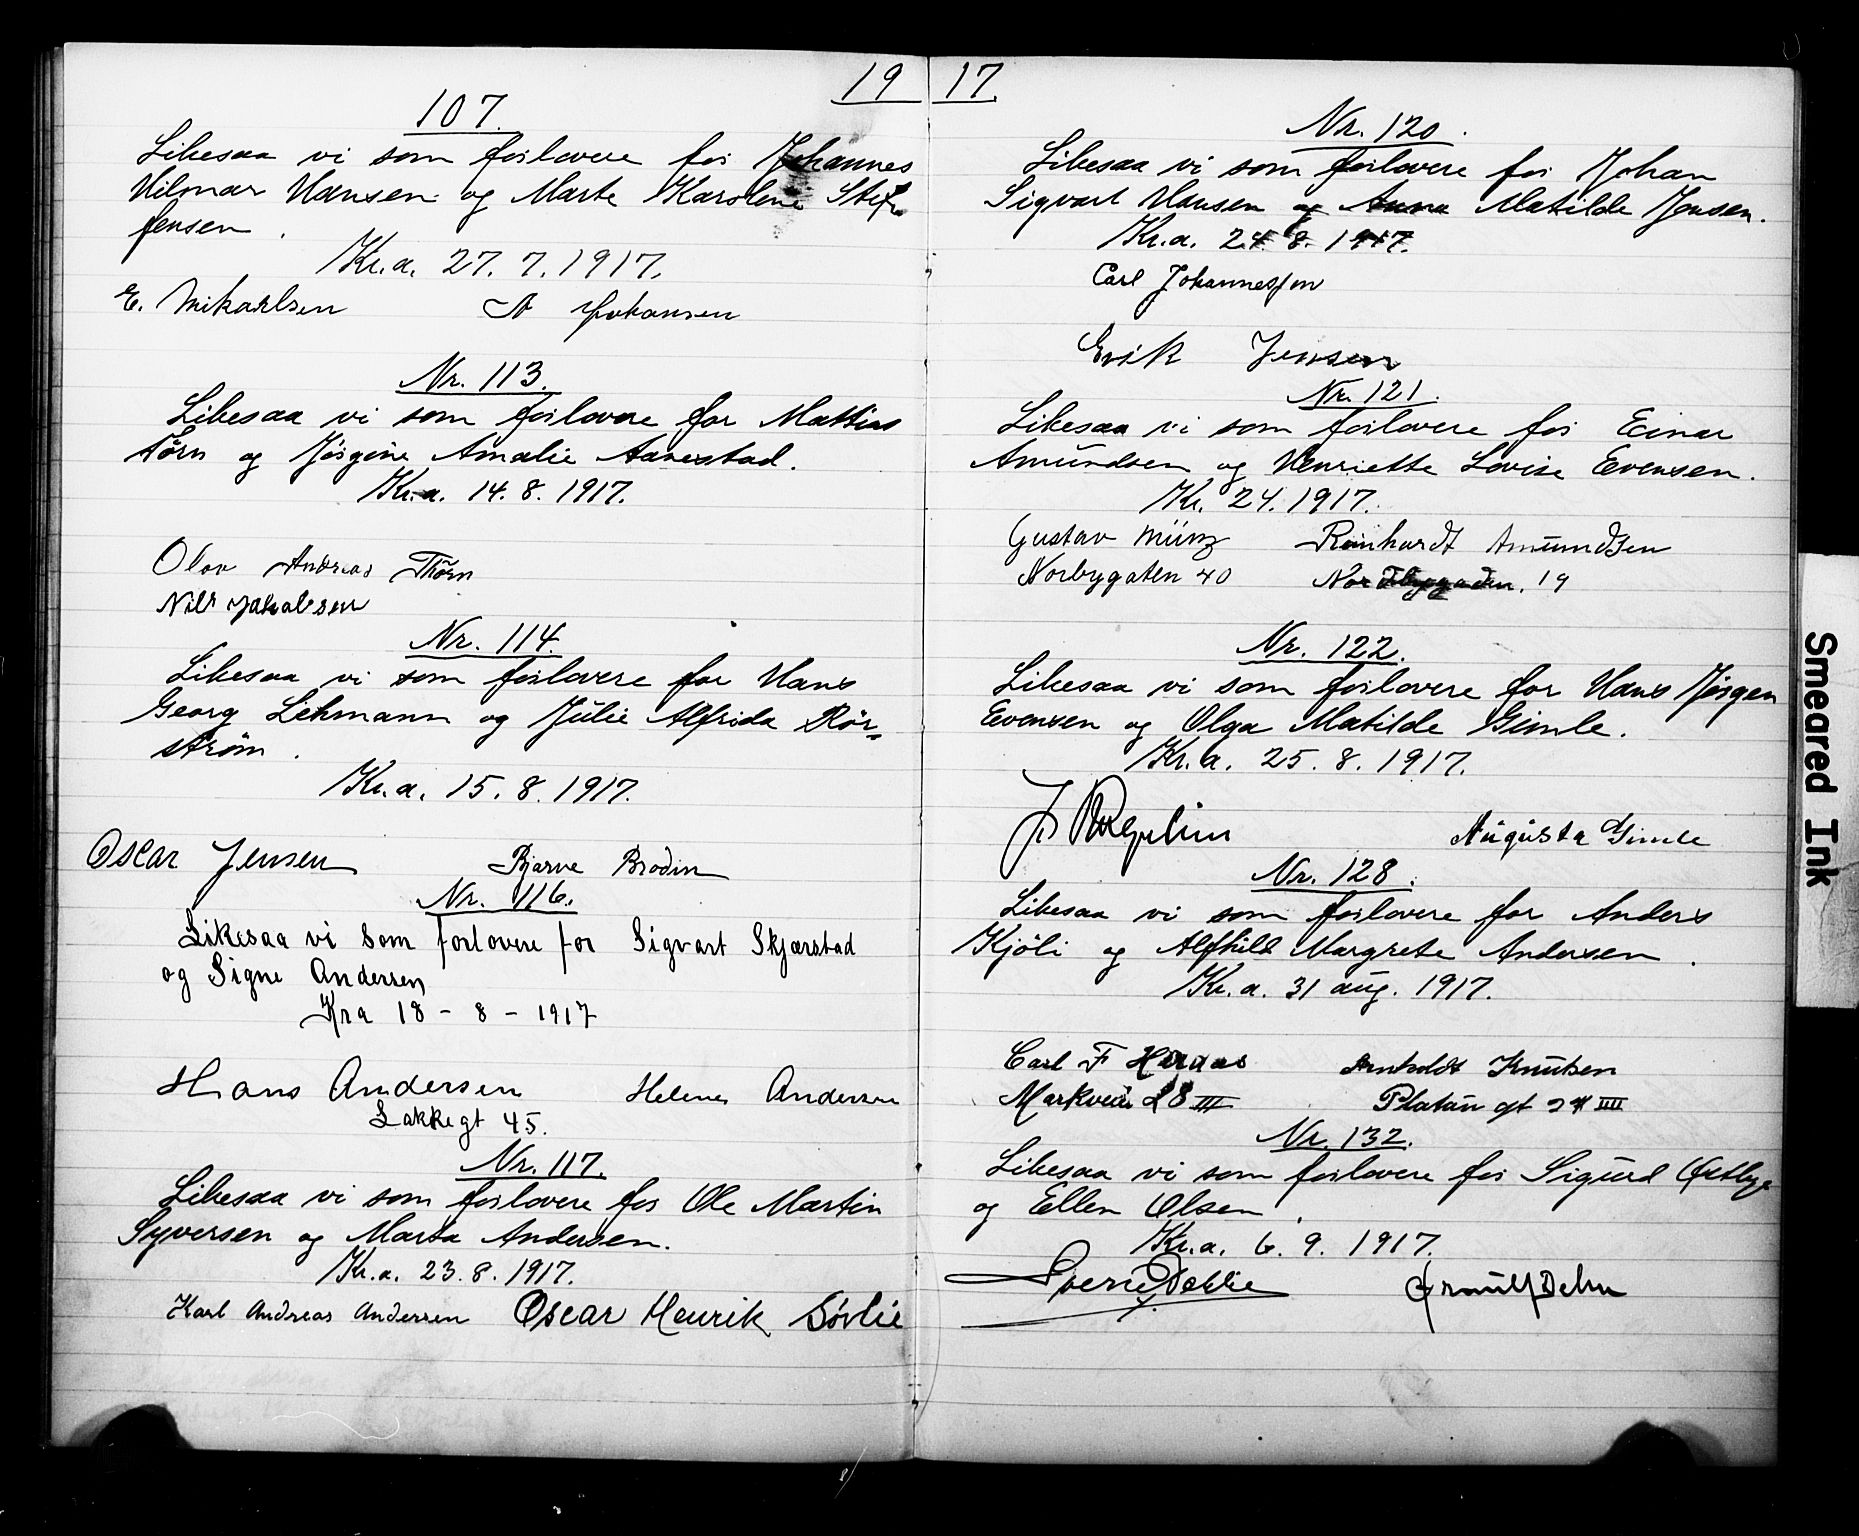 19 17.
107.
Likesaa vi som forlovere for Johannes
Hilmar Hansen og Marte Karoline Stef-
fensen.
Kr.a. 27. 7. 1917.
E. Mikaelsen A Johansen
Nr. 113.
Likesaa vi som forlovere for Mattias
törn og Jörgine Amalie Aanestad.
Kr.a. 14. 8. 1917.
Olav Andreas Thörn
Nils Jakobsen
Nr. 114.
Likesaa vi som forlovere for Hans
Georg Lehmann og Julie Alfrida Rör-
ström.
Kr.a. 15. 8. 1917.
Oscar Jensen Bjarne Brodin
Nr. 116.
Likesaa vi som forlovere for Sigvart Skjærstad
og Signe Andersen
Kra 18 - 8 - 1917
Hans Andersen Helene Andersen
Lakkegt 45.
Nr. 117.
Likesaa vi som forlovere for Ole Martin
Syversen og Marta Andersen.
Kr.a. 23. 8. 1917.
Karl Andreas Andersen Oscar Henrik Sörlie
Nr. 120.
Likesaa vi som forlovere for Johan
Sigvart Hansen og Anna Matilde Jensen.
Kr.a. 24. 8. 1917.
Carl Johannessen
Erik Jensen
Nr. 121.
Likesaa vi som forlovere for Einar
Amundsen og Henriette Lovise Evensen.
Kr. 24. 1917.
Gustav Münz Reinhardt Amundsen
Norbygaten 40 Nordbygaden. 19
Nr. 122.
Likesaa vi som forlovere for Hans Jörgen
Evensen og Olga Matilde Gimle.
Kr.a. 25. 8. 1917.
Augusta Gimle
Nr. 128.
Likesaa vi som forlovere for Anders
Kjöli og Alfhild Margrete Andersen.
Kr.a. 31 aug. 1917.
Carl F Arnholdt Knutsen
Markveien 28 III Platåu gt IIII
Nr. 132.
Likesaa vi som forlovere for Sigurd Östbye
og Ellen Olsen.
Kr.a. 6. 9. 1917.
Sverre Dehn
Smeared Ink